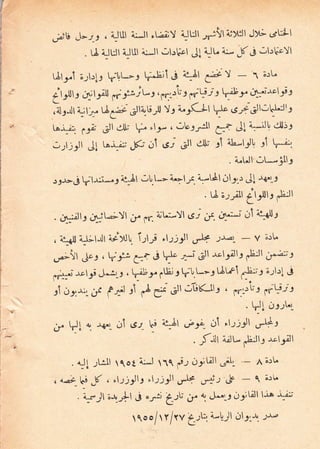 الختامى خلال الثلاثة الأشهر التالية لانقضاء السنة المالية ، ويرحل فائض
الاعتمادات فى كل سنة مالية إلى اعتمادات السنة المالية التالية لها .
مادة ٦ — لا تخضع الهيئة فى أنظمتها وحساباتها وإدارة أموالها
وقواعد تعيين موظفيها وترقياتهم وتأديبهم، وسائر شئونهم للقوانين واللوائح
والتعليمات التى تجرى عليها الحكومة ولا للرقابة التى تخضع لها ميزانية الدولة،
وذلك بالنسبة إلى جميع المشروعات ، سواء منها تلك التى تقوم بتنفيذها
بنفسها أو بالواسطة أو تلك التى ترى أن تكل تنفيذها إلى الوزارت
والمؤسسات العامة .
ويعهد إلى ديوان المحاسبة بمراجعة حسابات الهيئة ومستنداتها فى حدود
النظم واللوائح المقررة لها .
وللهيئة أن تستعين بمن ترى الاستعانة بهم من الاخصائيين والفنيين .
مادة ٧ — يصدر مجلس الوزراء قراراً باللائحة الداخلية للهيئة ،
وتتضمن النظم والقواعد التى تسير عليها فى جميع شئونها ، وعلى الأخص
فى إدارة وتنظيم أعمالها وحساباتها ونظام موظفيها ، ويشمل قواعد تعيينهم
وترقياتهم وتأديبهم ، والمكافآت التى تمنح لهم أو لغيرهم ممن يندبون أو
يعارون إليها .
ولمجلس الوزراء أن يفوض الهيئة فيما يرى أن يعهد به إليها من
القواعد والنظم سالفة الذكر .
مادة ٨ — يلغى القانون رقم ١٦٩ لسنة ١٩٥٤ المشار إليه .
مادة ٩ — على رئيس مجلس الوزراء والوزراء ، كل فيما يخصه ،
تنفيذ هذا القانون ويعمل به من تاريخ نشره فى الجريدة الرسمية .
صدر بديوان الرياسة بتاريخ ١٩٥٥/١٢/٢٧